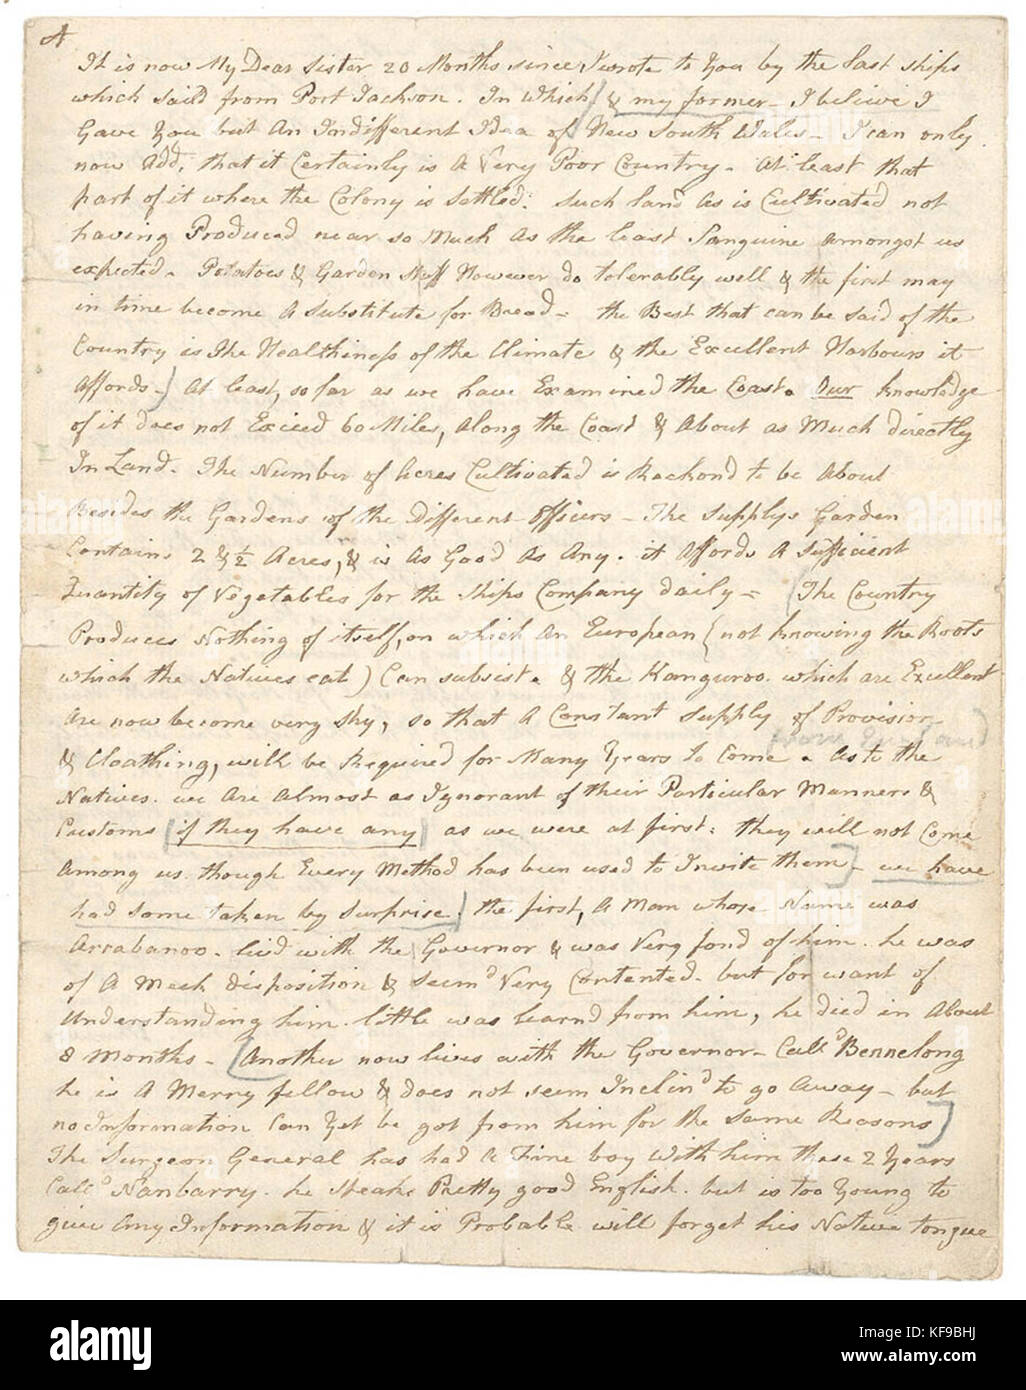 A
It is now My Dear Sister 20 Months since I wrote to You by the last ships
which Saild from Port Jackson. In Which & my former - I believe I
Gave You but An Indifferent Idea of New South Wales - I can only
now Add, that it Certainly is A Very Poor Country - At least that
part of it where the Colony is settled: such land As is Cultivated not
having Produced near so Much As the least Sanguine Amongst us
expected - Potatoes & Garden Stuff However do tolerably well & the first may
in time become A Substitute for Bread - the Best that can be said of the
Country is The Healthiness of the Climate & the Excellent Harbours it
Affords - At least, so far as we have Examined the Coast. Our knowledge
of it does not Exceed 60 Miles, Along the Coast & About as Much directly
In Land. The Number of Acres Cultivated is Reckond to be About
Besides the Gardens of the Different Officers - The Supplys Garden
Contains 2 & ½ Acres, & is As Good As Any. it Affords A Sufficient
Quantity of Vegetables for the Ships Company daily - (The Country
Produces Nothing of itself, on which An European (not knowing the Roots
which the Natives eat) Can subsist. & the Kanguroo. which are Excellent
Are now become very shy, so that A Constant Supply of Provision
from England
& Cloathing, will be Required for Many Years to Come. As to the
Natives. we Are Almost as Ignorant of their Particular Manners &
Customs (if they have any) as we were at first: they will not Come
Among us though Every Method has been used to Invite them - we have
had some taken by surprise. the first, A Man whose Name was
Arrabanoo. livd with the Governor & was Very fond of him. he was
of A Meek disposition & seemd Very Contented. but for want of
Understanding him. little was learnd from him, he died in About
8 Months - (Another now lives with the Governor - Calld Bennelong
he is A Merry fellow & does not seem Inclind to go Away - but
no Information Can Yet be got from him for the Same Reasons)
The Surgeon General has had A Fine boy With him these 2 Years
Calld Nanbarry. he speaks Pretty good English. but is too Young to
give Any Information & it is Probable will forget his Native tongue
alamy
Image ID: KF9BHJ
www.alamy.com